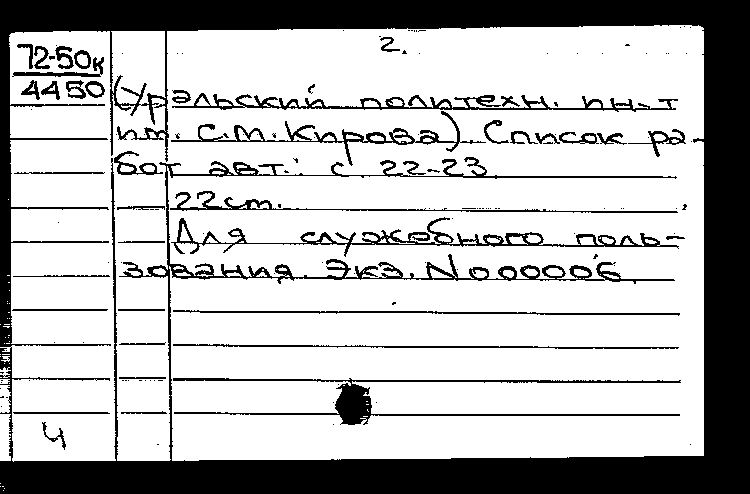 2.
72-50к
4450
(Уральский политехн. ин-т
им. С.М. Кирова). Список ра-
бот авт.: с. 22-23.
22 см.
Для служебного поль-
зования. Экз. N 000006.
Ч